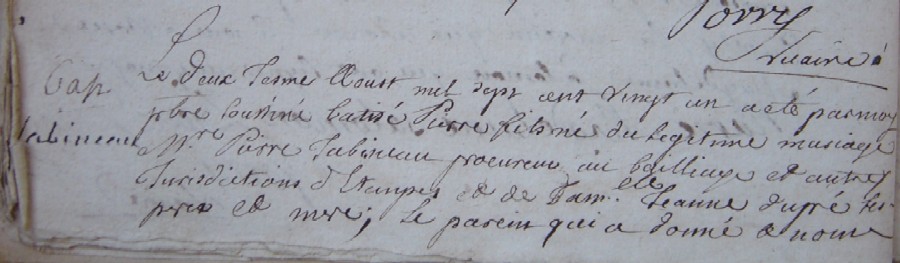 Vicaire
Bap
Tabineau
Le deux iesme Aoust mil sept cent vingt un a eté par moy
pbre soussiné batisé Pierre fils né du legitime mariage
de Mre Pierre Tabineau procureur au bailliage et autres
Jurisdictions d'Etampes et de Dam.elle Jeanne dupré ses
perre et mere, le parein qui a donné le nom